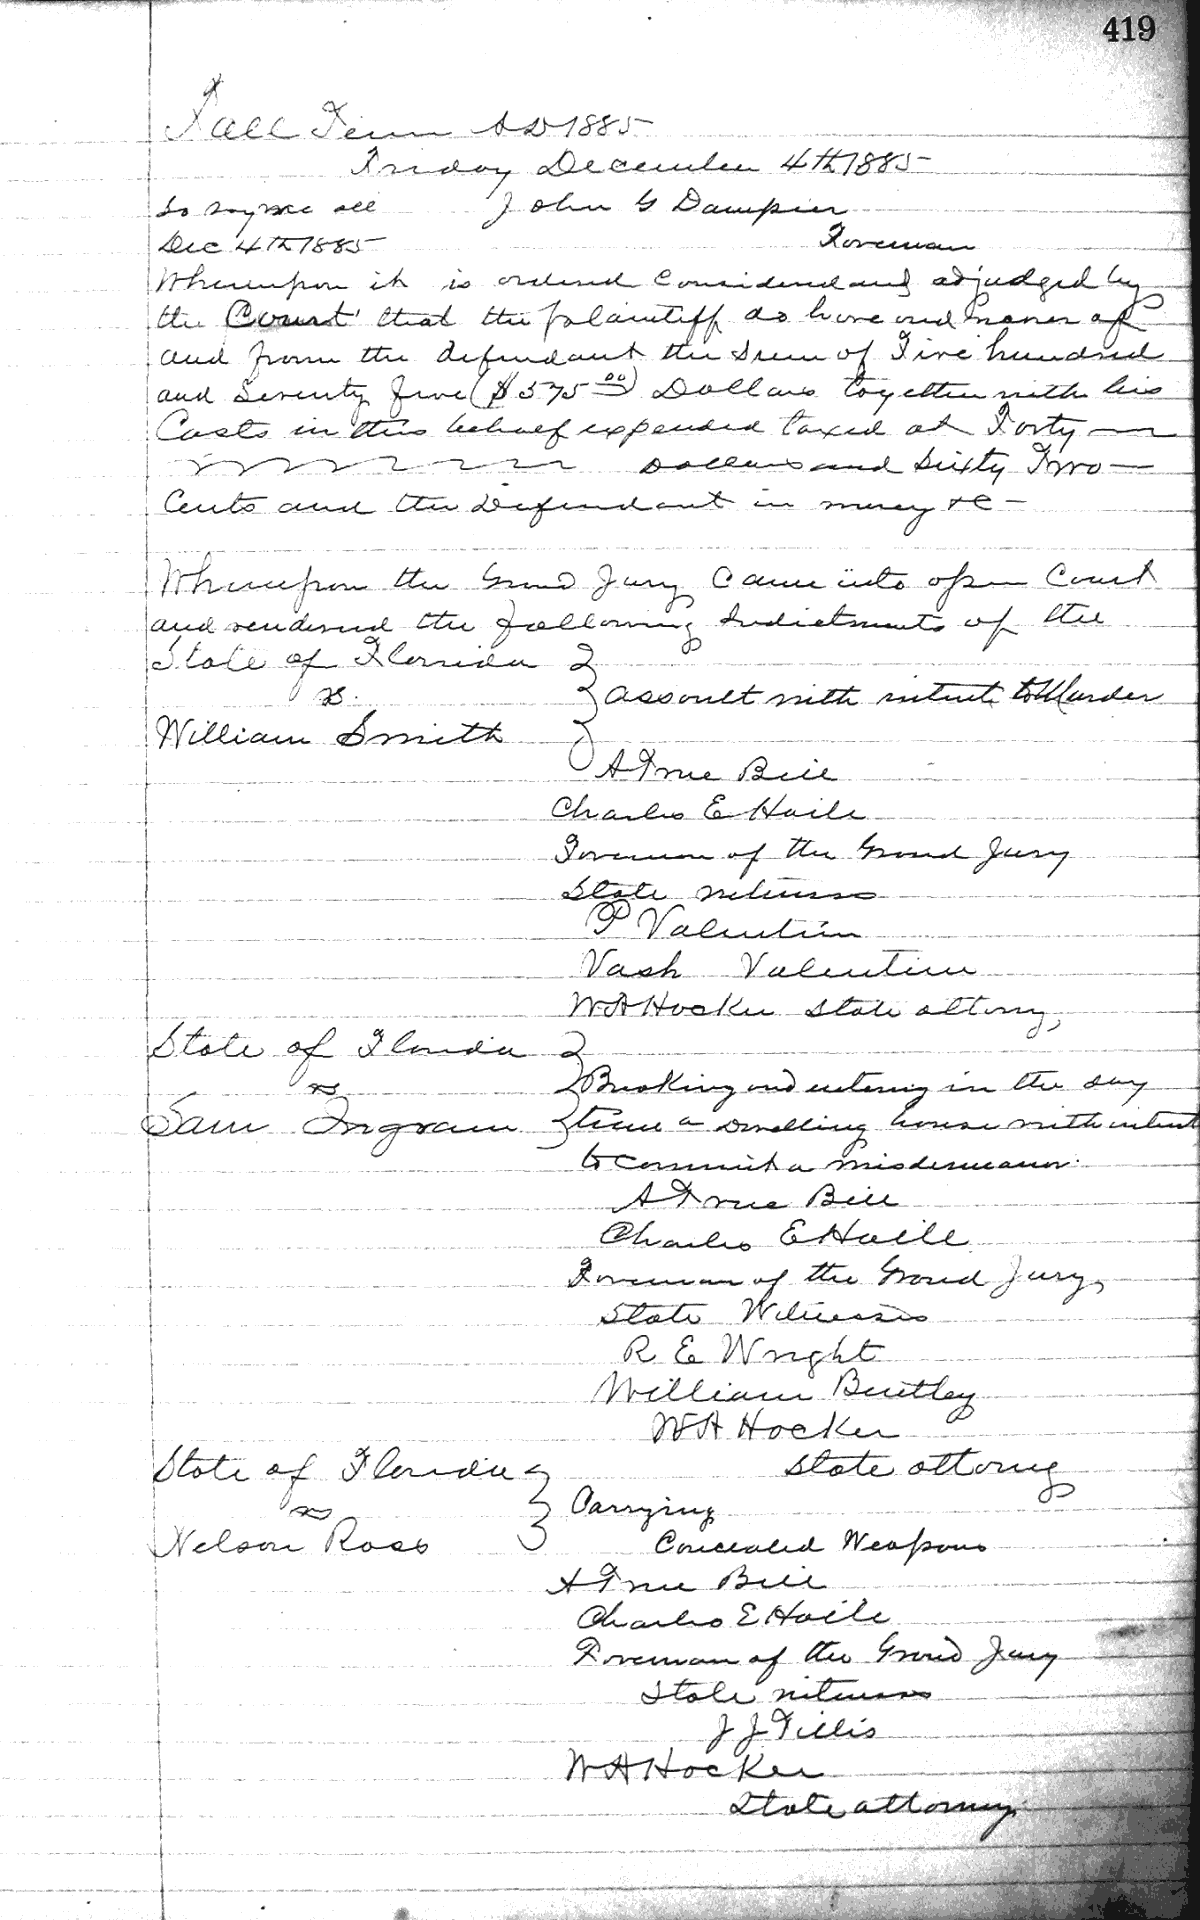 419
Fall Term AD 1885
Friday December 4th 1885
So say we all John G Dampier
Dec 4th 1885 Foreman
Whereupon it is ordered Considered and adjudged by
the Court that the plaintiff do have and recover of
and from the defendant the Sum of Five hundred
and Seventy five ($575 00) Dollars together with his
Costs in this behalf expended taxed at Forty
Dollars and Sixty Two
Cents and the Defendant in mercy &c
Whereupon the Grand Jury Came into open Court
and rendered the following Indictments of the
State of Florida
vs.
assault with intent to Murder
William Smith
A True Bill
Charles E Haile
Foreman of the Grand Jury
State witness
P Valentine
Vash Valentine
W A Hocker State attorny
State of Florida
vs Breaking and entering in the day
Sam Ingram time a dwelling house with intent
to commit a misdemeanor.
A True Bill
Charles E Haile
Foreman of the Grand Jury
State Witnesses
R E Wright
William Bentley
W A Hocker
State of Florida State attorny
vs Carrying
Nelson Ross Concealed Weapons
A True Bill
Charles E Haile
Foreman of the Grand Jury
State witness
J J Tillis
W A Hocker
State attorney